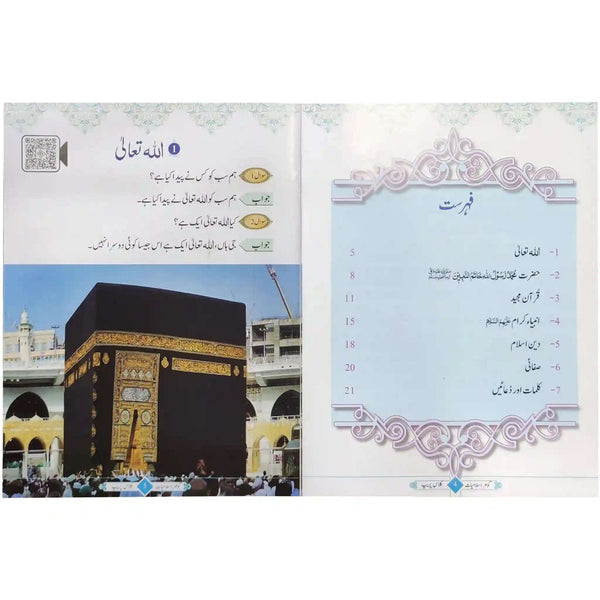 فہرست
1- اللہ تعالیٰ 5
2- حضرت مُحَمَّدٌ رَّسُوْلُ اللہِ خَاتَمُ النَّبِیّٖنَ ﷺ 8
3- قرآن مجید 11
4- انبیاء کرام عَلَیْہِمُ السَّلَام 15
5- دین اسلام 18
6- صفائی 20
7- کلمات اور دُعائیں 21
4
1 اللہ تعالیٰ
سوال 1 ہم سب کو کس نے پیدا کیا ہے؟
جواب ہم سب کو اللہ تعالیٰ نے پیدا کیا ہے۔
سوال 2 کیا اللہ تعالیٰ ایک ہے؟
جواب جی ہاں، اللہ تعالیٰ ایک ہے اس جیسا کوئی دوسرا نہیں۔
5